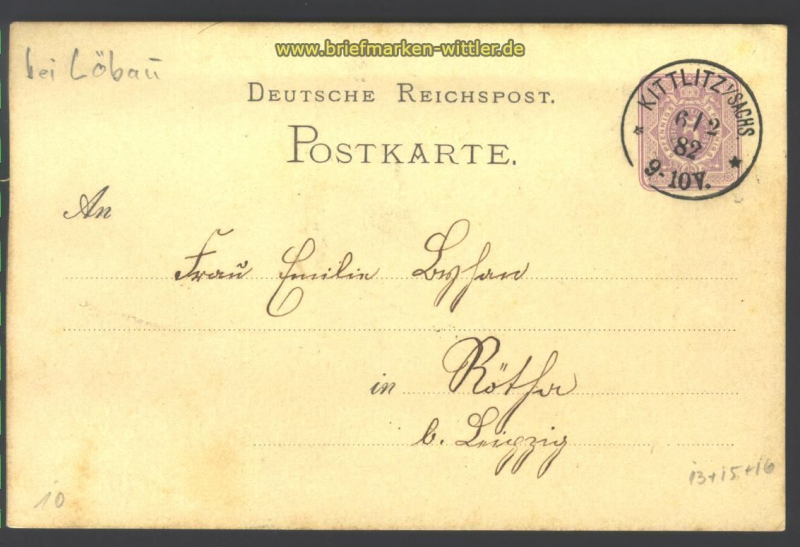 www.briefmarken-wittler.de
bei Löbau
DEUTSCHE REICHSPOST.
POSTKARTE.
KITTLITZ i/SACHS
6/2
82
9-10V.
An
Frau Emilie
in Rötha
b. Leipzig
10
13+15+16